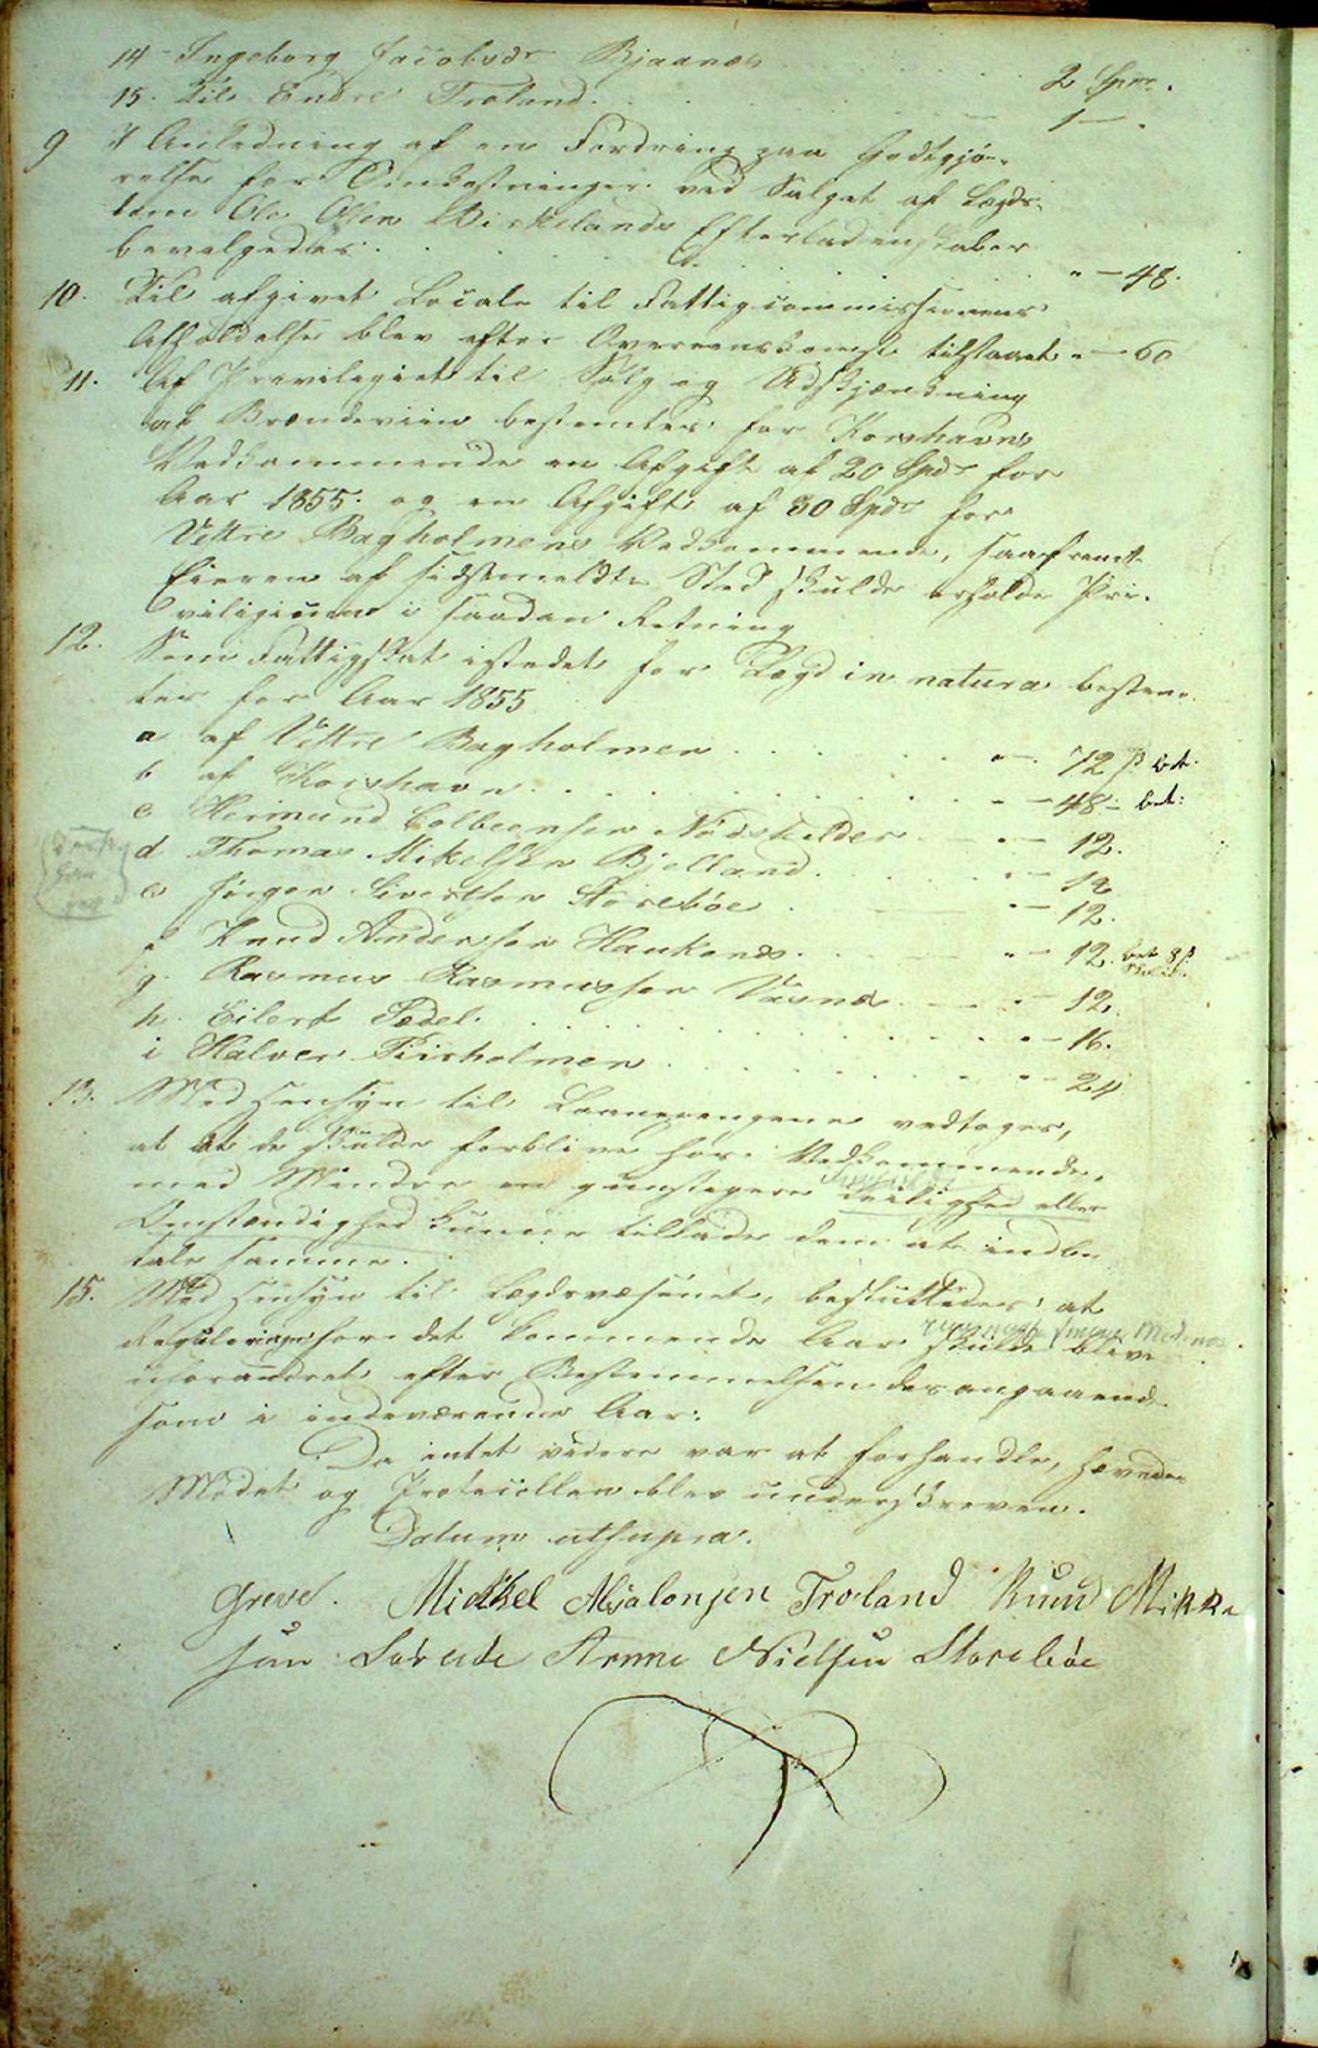 14 - Ingeborg Jacobsdr Bjaanæs . . . . . 2 Spd.
15. Til Endre Troland . . . . . 1 — .
9 I Anledning af en Fordring paa Godtgjø-
relse for Omkostninger ved Salget af Lægds-
lem Ole Olsen Birkelands Efterladenskaber
bevilgedes . . . . . " — 48.
10. Til afgivet Locale til Fattigcommissionens
Afholdelse blev efter Overeenskomst tilstaaet " — 60
11. Af Previlegiet til Salg og Udskjænkning
af Brændeviin bestemtes for Korshavns
Vedkommende en Afgift af 20 Spd for
Aar 1855. og en Afgift af 30 Spd for
Vettre Bagholmens Vedkommende, saafremt
Eieren af sidstmeldte Sted skulde erholde Pri-
viligium i saadan Retning
12. Som Fattigskat istedet for Lægd in natura bestem-
tes for Aar 1855
a af Vettre Bagholmen . . . . " — 72 ß bet.
b af Korshavn . . . . " — 48 - bet:
c Hermund Colbeensen Nødskilder " — 12.
d Thomas Mikelsen Bjelland . . . " — 12
e Jørgen Sivertsen Storebøe . " — 12.
f Knud Andersson Haukanæs . . " — 12. bet 8 ß
g. Rasmus Rasmussen Vaanæs . " — 12.
h. Eilert Sedel . . . . " — 16.
i Halver Kirholmen . . . . " — 24
13. Med Hensyn til Laanepengene vedtoges,
at at de skulde forblive hos Vedkommende,
med Mindre en gunstigere Leilighed eller
Omstændighed kunne tillade dem at indbe
tale samme.
15. Med Hensyn til Lægdsvæsenet, besluttedes at
Reguleringen for det kommende Aar skulde blive
uforandret efter Bestemmelsen desangaaende
som i indeværende Aar.
Da intet videre var at forhandle, hævedes
Mødet og Protocollen blev underskreven.
Datum utsupra.
Greve. Mickkel Absalonsen Troland Knud Mikke
sen Arnne Nielsen Storebøe